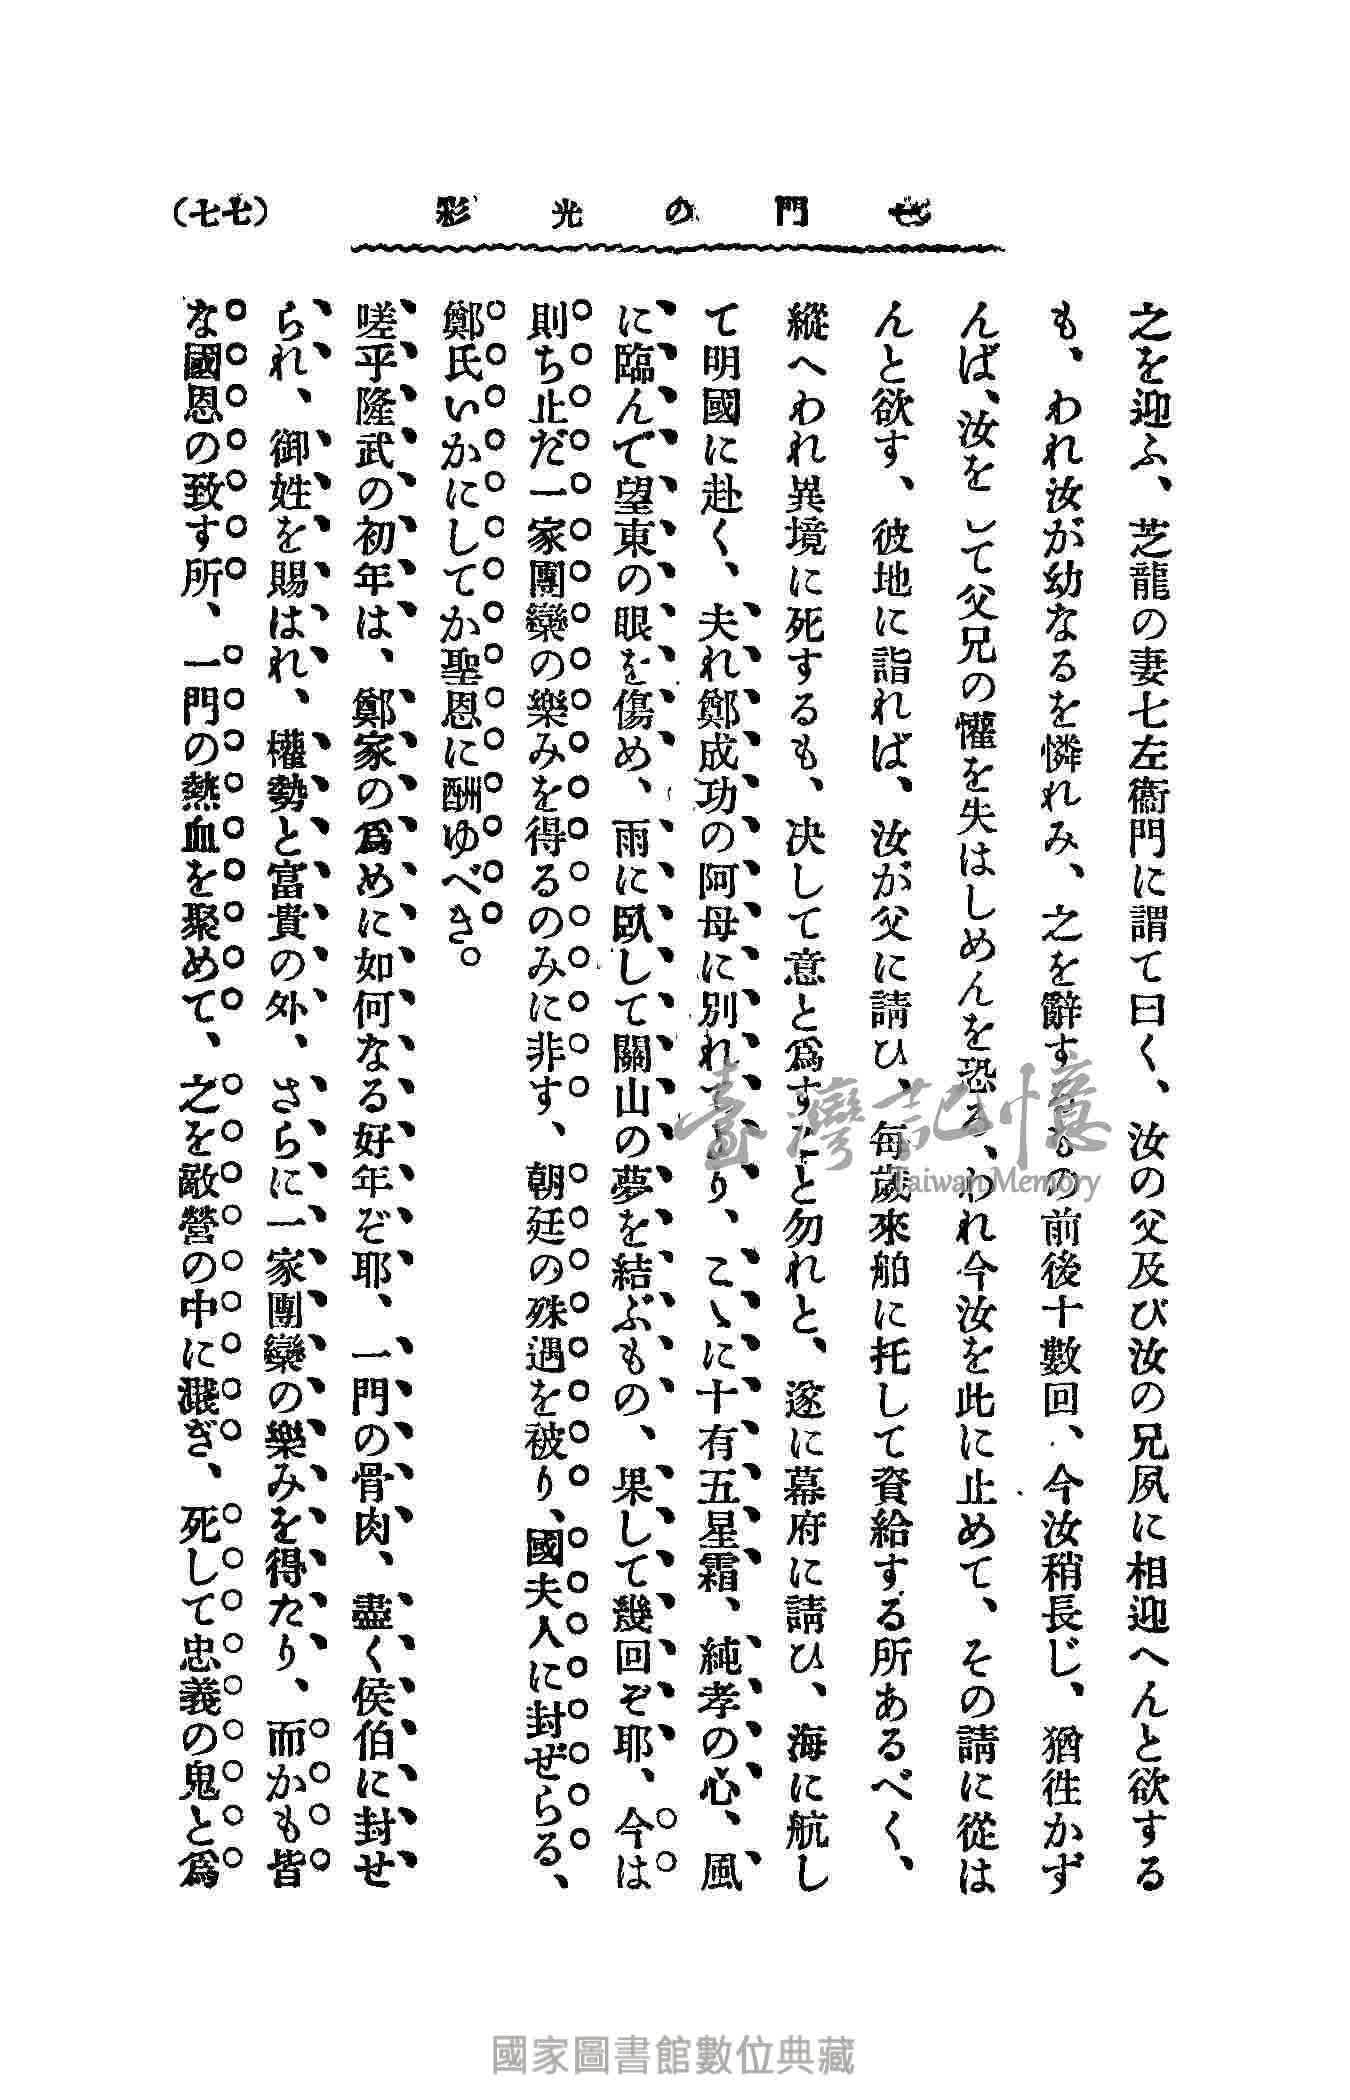 門の光彩
(七七)
之を迎ふ、芝龍の妻七左衞門に謂て曰く、汝の父及び汝の兄夙に相迎へんと欲する
も、われ汝が幼なるを憐れみ、之を辭すの前後十數回、今汝稍長じ、猶徃かず
んば、汝をして父兄の懽を失はしめんを恐る、われ今汝を此に止めて、その請に從は
んと欲す、彼地に詣れば、汝が父に請ひ、每歲來舶に托して資給する所あるべく、
縱へわれ異境に死するも、决して意と爲すこと勿れと、遂に幕府に請ひ、海に航し
て明國に赴く、夫れ鄭成功の阿母に別れてより、こゝに十有五星霜、純孝の心、風
に臨んで望東の眼を傷め、雨に臥して關山の夢を結ぶもの、果して幾回ぞ耶、今は
則ち止だ一家團欒の樂みを得るのみに非す、朝廷の殊遇を被り、國夫人に封ぜらる、
鄭氏いかにしてか聖恩に酬ゆべき。
嗟乎隆武の初年は、鄭家の爲めに如何なる好年ぞ耶、一門の骨肉、盡く侯伯に封せ
られ、御姓を賜はれ、權勢と富貴の外、さらに一家團欒の樂みを得たり、而かも皆
な國恩の致す所、一門の熱血を聚めて、之を敵營の中に濺ぎ、死して忠義の鬼と爲
臺灣記憶
Taiwan Memory
國家圖書館數位典藏